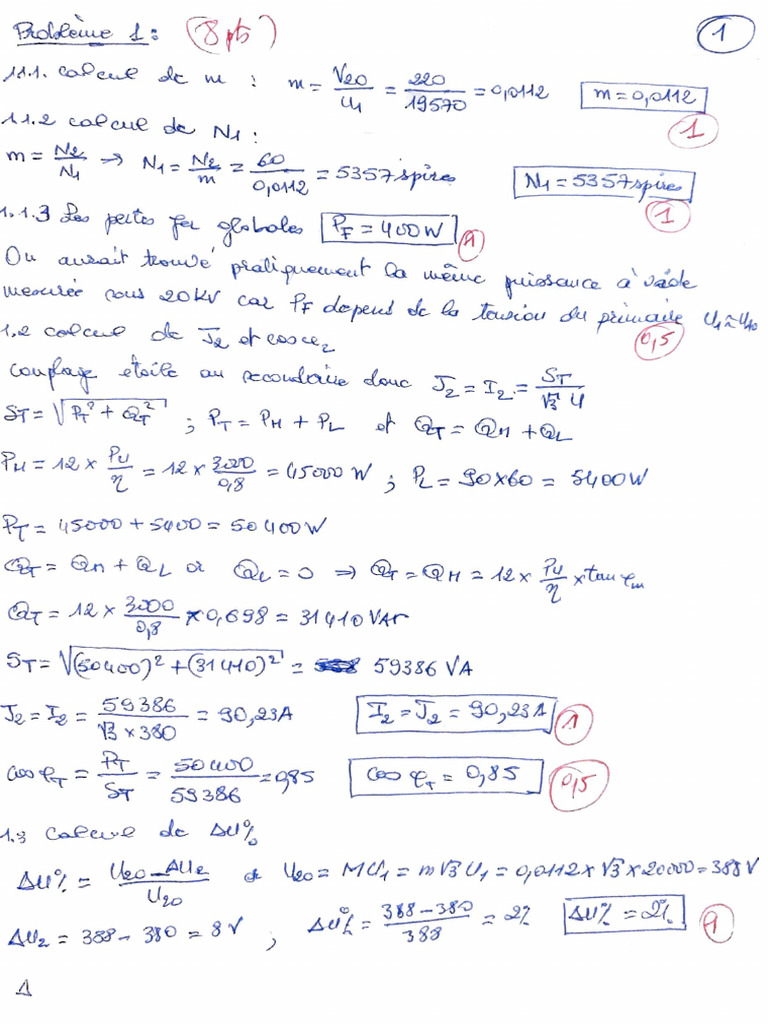 Problème 1: (8 pts) 1
1.1.1. calcul de m : m = V20/U1 = 220/19570 = 0,0112 m = 0,0112
1
1.1.2 calcul de N1 :
m = N2/N1 → N1 = N2/m = 60/0,0112 = 5357 spires N1 = 5357 spires
1
1.1.3 Les pertes fer globales PF = 400 W 1
On aurait trouvé pratiquement la même puissance à vide
mesurée sous 20kV car PF depend de la tension du primaire U1 ≈ U10
0,5
1.2 calcul de J2 et cosφ2
Couplage étoile au secondaire donc J2 = I2 = ST/√3 U
ST = √(PT² + QT²) ; PT = PM + PL et QT = QM + QL
PM = 12 × Pu/η = 12 × 3000/0,8 = 45000 W ; PL = 90×60 = 5400 W
PT = 45000 + 5400 = 50400 W
QT = QM + QL or QL = 0 ⇒ QT = QM = 12 × Pu/η × tan φm
QT = 12 × 3000/0,8 × 0,698 = 31410 VAr
ST = √((50400)² + (31410)²) = 59386 VA
J2 = I2 = 59386/√3 × 380 = 90,23A I2 = J2 = 90,23A 1
cos φT = PT/ST = 50400/59386 = 0,85 cos φT = 0,85 0,5
1.3 Calcul de ΔU%
ΔU% = U20 - ΔU2/U20 et U20 = MU1 = m√3 U1 = 0,0112 × √3 × 20000 = 388 V
ΔU2 = 388 - 380 = 8 V ; ΔU% = 388 - 380/388 = 2% ΔU% = 2% 1
1